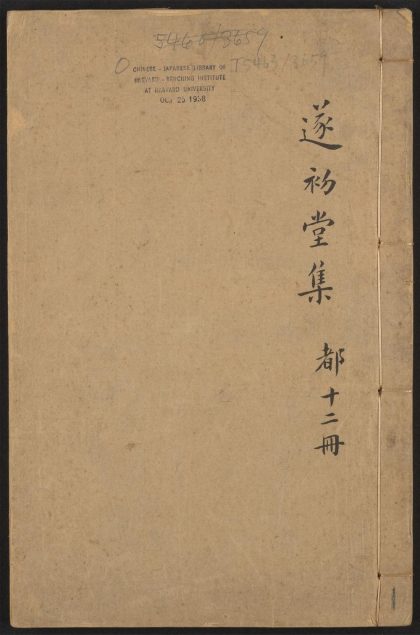 5468/3659
T5463/3659
CHINESE - JAPANESE LIBRARY OF
HARVARD - YENCHING INSTITUTE
AT HARVARD UNIVERSITY
OCT 25 1938
遂初堂集
都十二冊